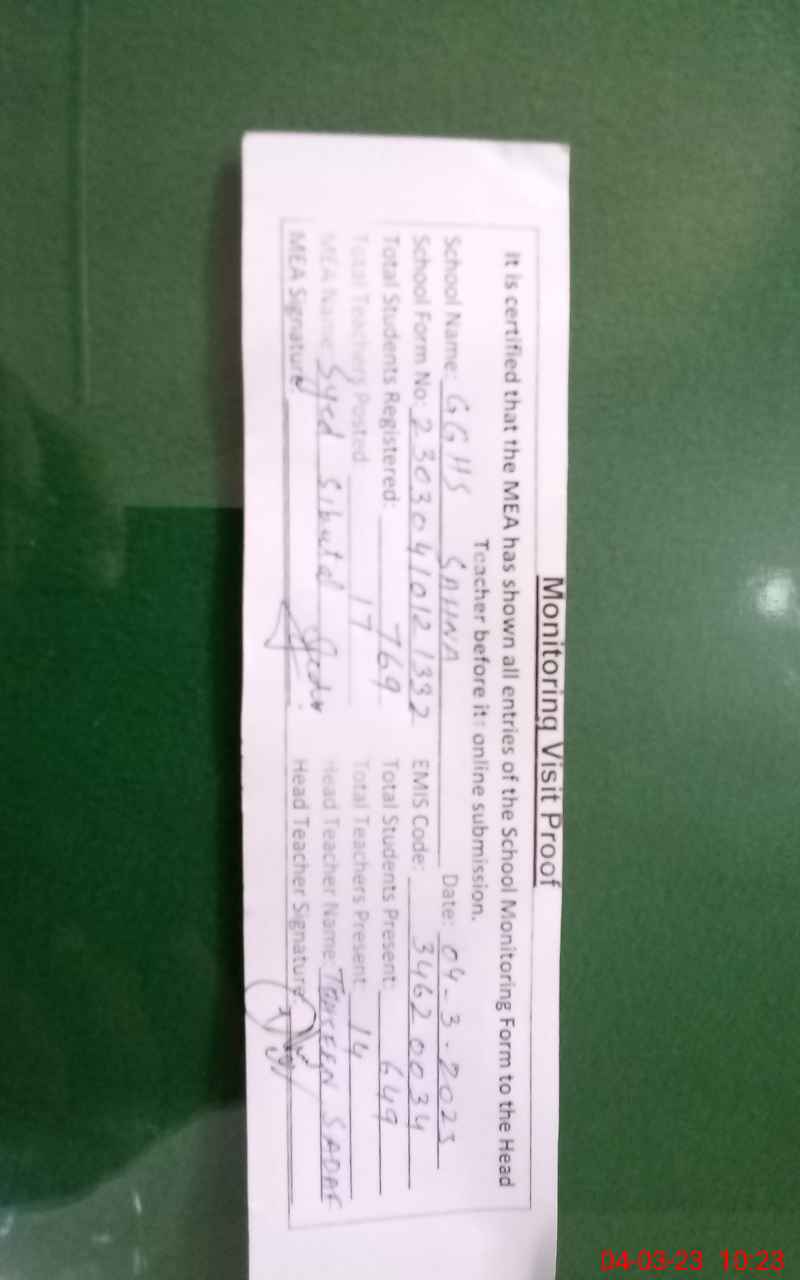 Monitoring Visit Proof
It is certified that the MEA has shown all entries of the School Monitoring Form to the Head
Teacher before its online submission.
School Name: GGHS SAHNA Date: 04-3-2023
School Form No: 2303041012 1332 EMIS Code: 34620034
Total Students Registered: 769 Total Students Present: 649
Total Teachers Posted 17 Total Teachers Present: 14
MEA Name: Syed Head Teacher Name: SADAF
MEA Signature Head Teacher Signature:
04-03-23 10:23